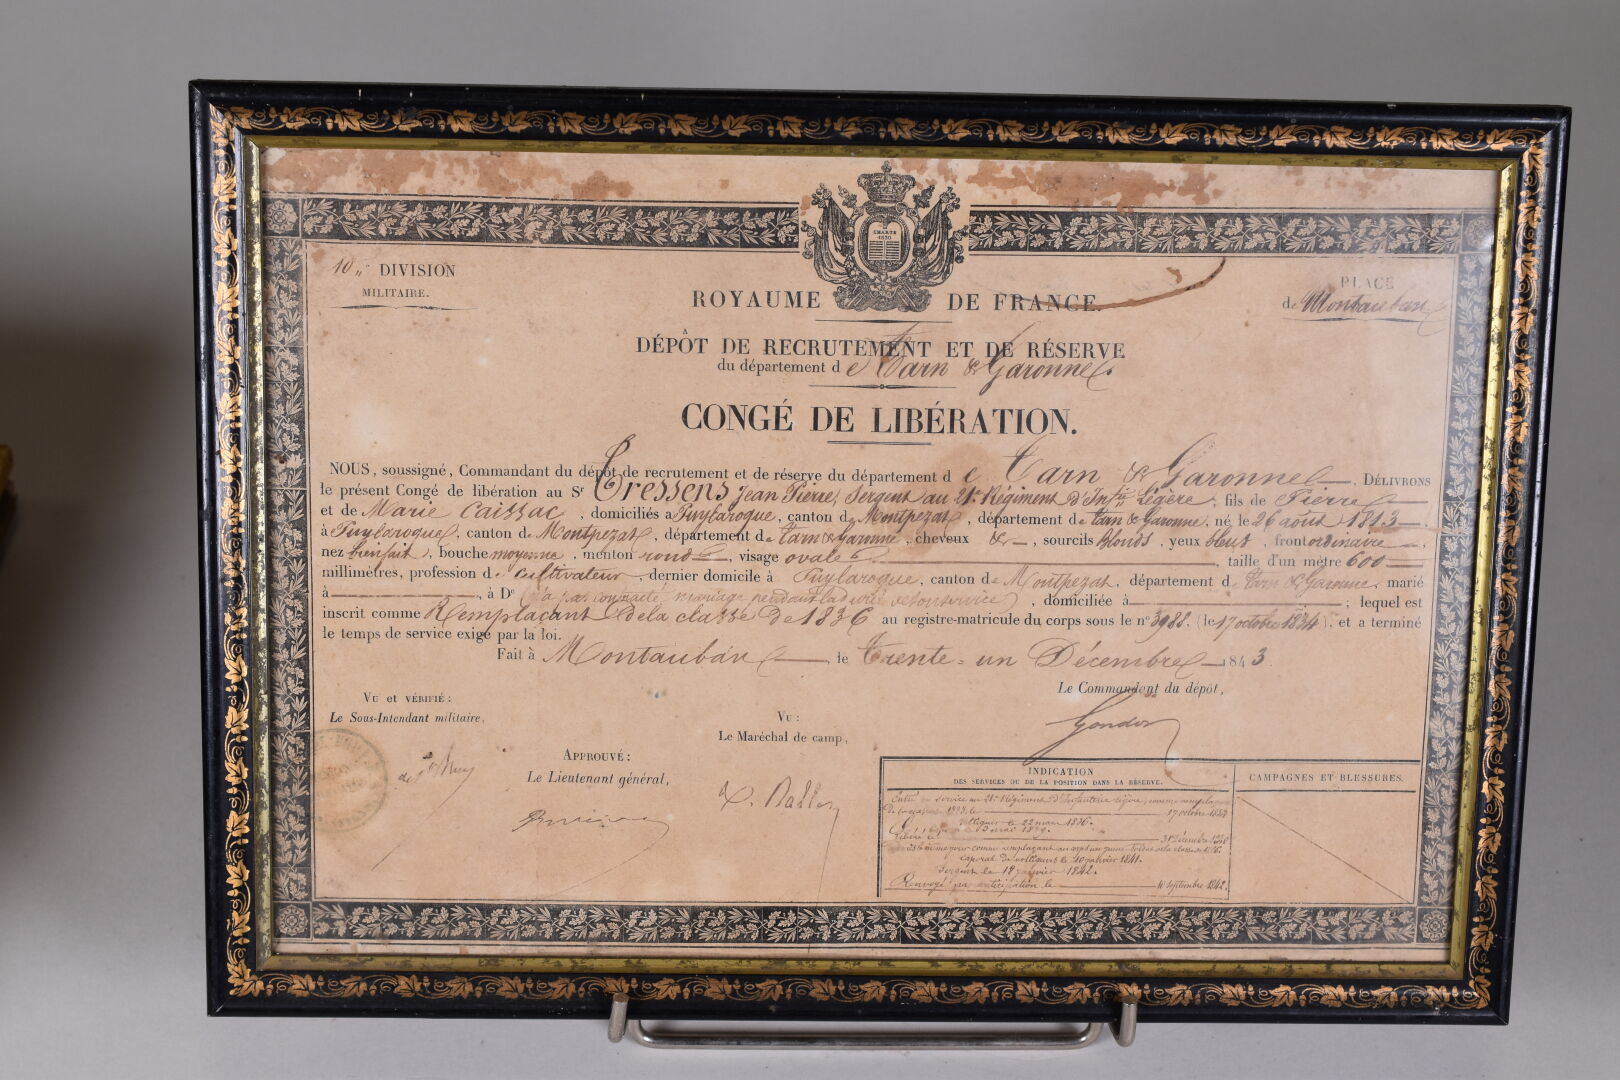 10e DIVISION
MILITAIRE.
CHARTE
1830
PLACE
de Montauban
ROYAUME DE FRANCE.
DÉPÔT DE RECRUTEMENT ET DE RÉSERVE
du département de Tarn & Garonne.
CONGÉ DE LIBÉRATION.
NOUS, soussigné, Commandant du dépôt de recrutement et de réserve du département de Tarn & Garonne. DÉLIVRONS
le présent Congé de libération au Sr Tressens Jean Pierre, Sergent au 21e Régiment d'Infie Légère, fils de Pierre
et de Marie Caissac, domiciliés à Puylaroque, canton de Montpezat, département de Tarn & Garonne, né le 26 août 1813,
à Puylaroque, canton de Montpezat, département de Tarn & Garonne, cheveux &, sourcils blonds, yeux bleus, front ordinaire,
nez bien fait, bouche moyenne, menton rond, visage ovale, taille d'un mètre 600
millimètres, profession de cultivateur, dernier domicile à Puylaroque, canton de Montpezat, département de Tarn & Garonne, marié
à , à De n'a pas contracté mariage pendant la durée de son service, domiciliée à ; lequel est
inscrit comme Remplaçant de la classe de 1836 au registre-matricule du corps sous le n° 3988. (le 17 octobre 1834), et a terminé
le temps de service exigé par la loi.
Fait à Montauban, le Trente-un Décembre 1843.
Le Commandant du dépôt,
VU ET VÉRIFIÉ :
Le Sous-Intendant militaire,
VU :
Le Maréchal de camp,
APPROUVÉ :
Le Lieutenant général,
INDICATION
DES SERVICES OU DE LA POSITION DANS LA RÉSERVE.
CAMPAGNES ET BLESSURES.
Entré au service au 21e Régiment d'Infanterie légère, comme
17 octobre 1834
Voltigeur le 22 mars 1836.
Libéré le 31 Décembre
caporal de voltigeurs le 10 janvier 1841.
Sergent le 12 janvier 1842.
Renvoyé par anticipation le 10 septembre 1842.